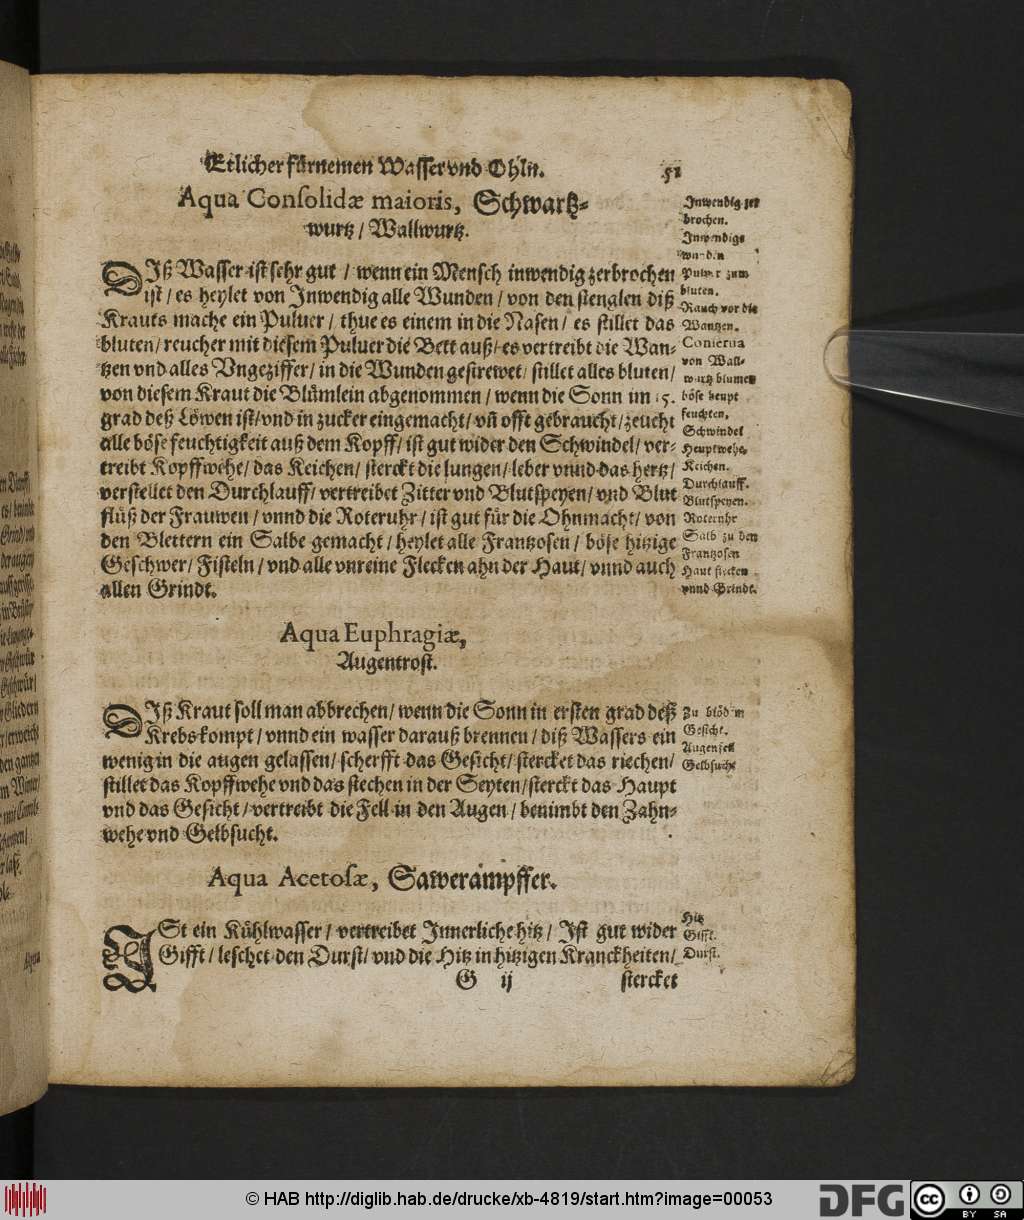 Etlicher fürnemen Wasser vnd Ohln.
51
Aqua Consolidæ maioris, Schwartz-
wurtz / Wallwurtz.
DIß Wasser ist sehr gut / wenn ein Mensch inwendig zerbrochen
ist / es heylet von Inwendig alle Wunden / von den stenglen diß
Krauts mache ein Puluer / thue es einem in die Nasen / es stillet das
bluten / reucher mit diesem Puluer die Bett auß / es vertreibt die Wan-
tzen vnd alles Vngeziffer / in die Wunden gestrewet / stillet alles bluten /
von diesem Kraut die Blümlein abgenommen / wenn die Sonn im 15.
grad deß Löwen ist / vnd in zucker eingemacht / vñ offt gebraucht / zeucht
alle böse feuchtigkeit auß dem Kopff / ist gut wider den Schwindel / ver-
treibt Kopffwehe / das Keichen / sterckt die lungen / leber vnnd das hertz /
verstellet den Durchlauff / vertreibet Zitter vnd Blutspeyen / vnd Blut
flüß der Frauwen / vnnd die Roteruhr / ist gut für die Ohnmacht / von
den Blettern ein Salbe gemacht / heylet alle Frantzosen / böse hitzige
Geschwer / Fisteln / vnd alle vnreine Flecken ahn der Haut / vnnd auch
allen Grindt.
Inwendig zer
brochen.
Inwendige
wunden
Puluer zum
bluten.
Rauch vor die
Wantzen.
Conserua
von Wall-
wurtz blumen
böse heupt
feuchten.
Schwindel
Heuptwehe
Keichen.
Durchlauff.
Blutspeyen.
Roteruhr
Salb zu den
Frantzosen
Haut flecken
vnnd Grindt.
Aqua Euphragiæ,
Augentrost.
DIß Kraut soll man abbrechen / wenn die Sonn in ersten grad deß
Krebs kompt / vnnd ein wasser darauß brennen / diß Wassers ein
wenig in die augen gelassen / scherfft das Gesicht / stercket das riechen /
stillet das Kopffwehe vnd das stechen in der Seyten / sterckt das Haupt
vnd das Gesicht / vertreibt die Fell in den Augen / benimbt den Zahn-
wehe vnd Gelbsucht.
Zu blödem
Gesicht.
Augenfell
Gelbsucht
Aqua Acetosæ, Sawerampffer.
ISt ein Kühlwasser / vertreibet Innerliche hitz / Ist gut wider
Gifft / leschet den Durst / vnd die Hitz in hitzigen Kranckheiten /
Hitz
Gifft.
Durst.
G ij
stercket
© HAB http://diglib.hab.de/drucke/xb-4819/start.htm?image=00053
DFG
cc
BY SA